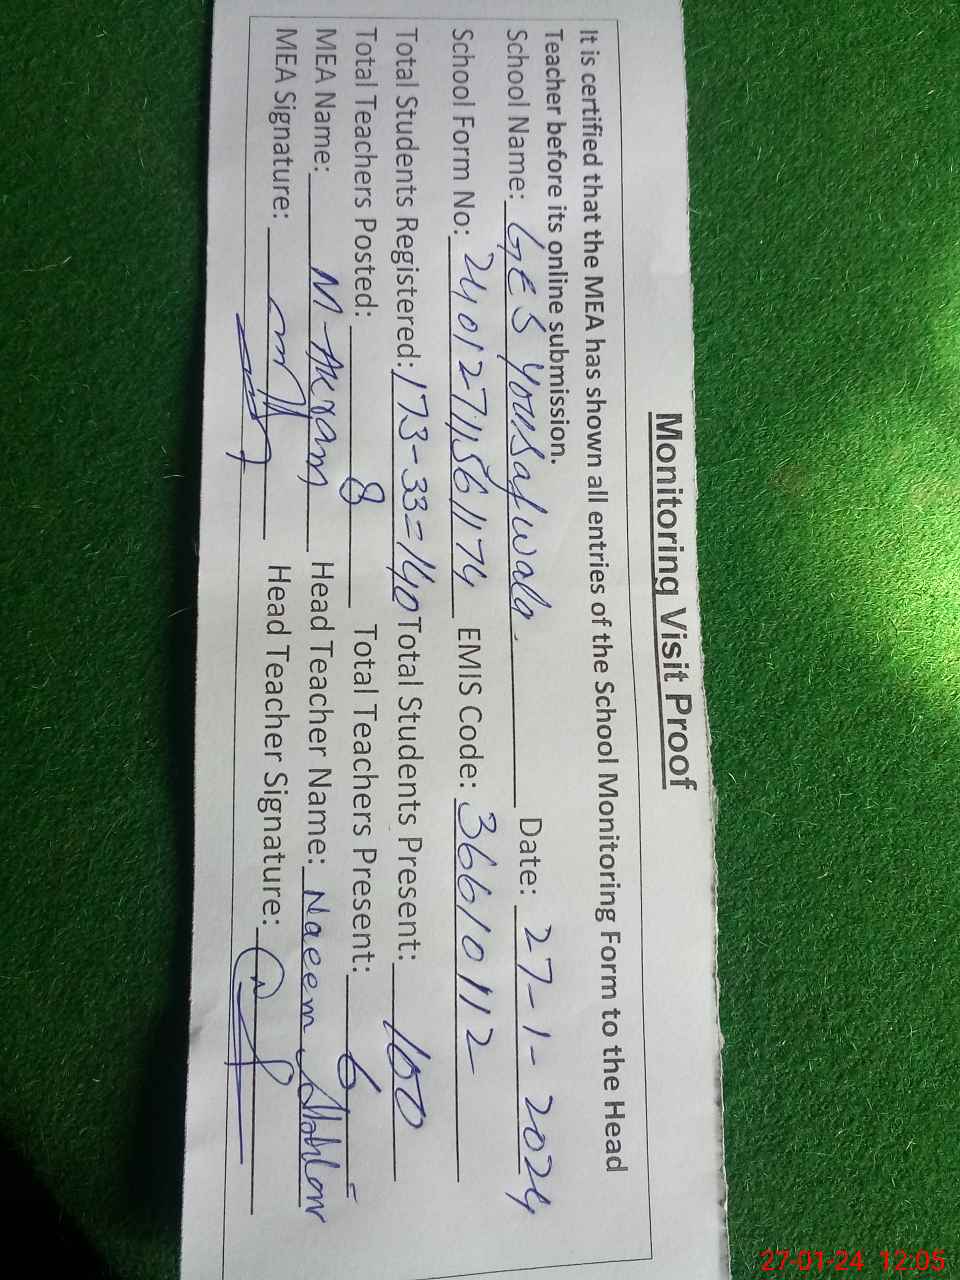 Monitoring Visit Proof
It is certified that the MEA has shown all entries of the School Monitoring Form to the Head
Teacher before its online submission.
School Name: GES Yousafwala. Date: 27-1-2024
School Form No: 24012711561174 EMIS Code: 36610112
Total Students Registered: 173-33=140 Total Students Present: 100
Total Teachers Posted: 8 Total Teachers Present: 6
MEA Name: M. Akram Head Teacher Name: Naeem
MEA Signature: Head Teacher Signature:
27-01-24 12:05